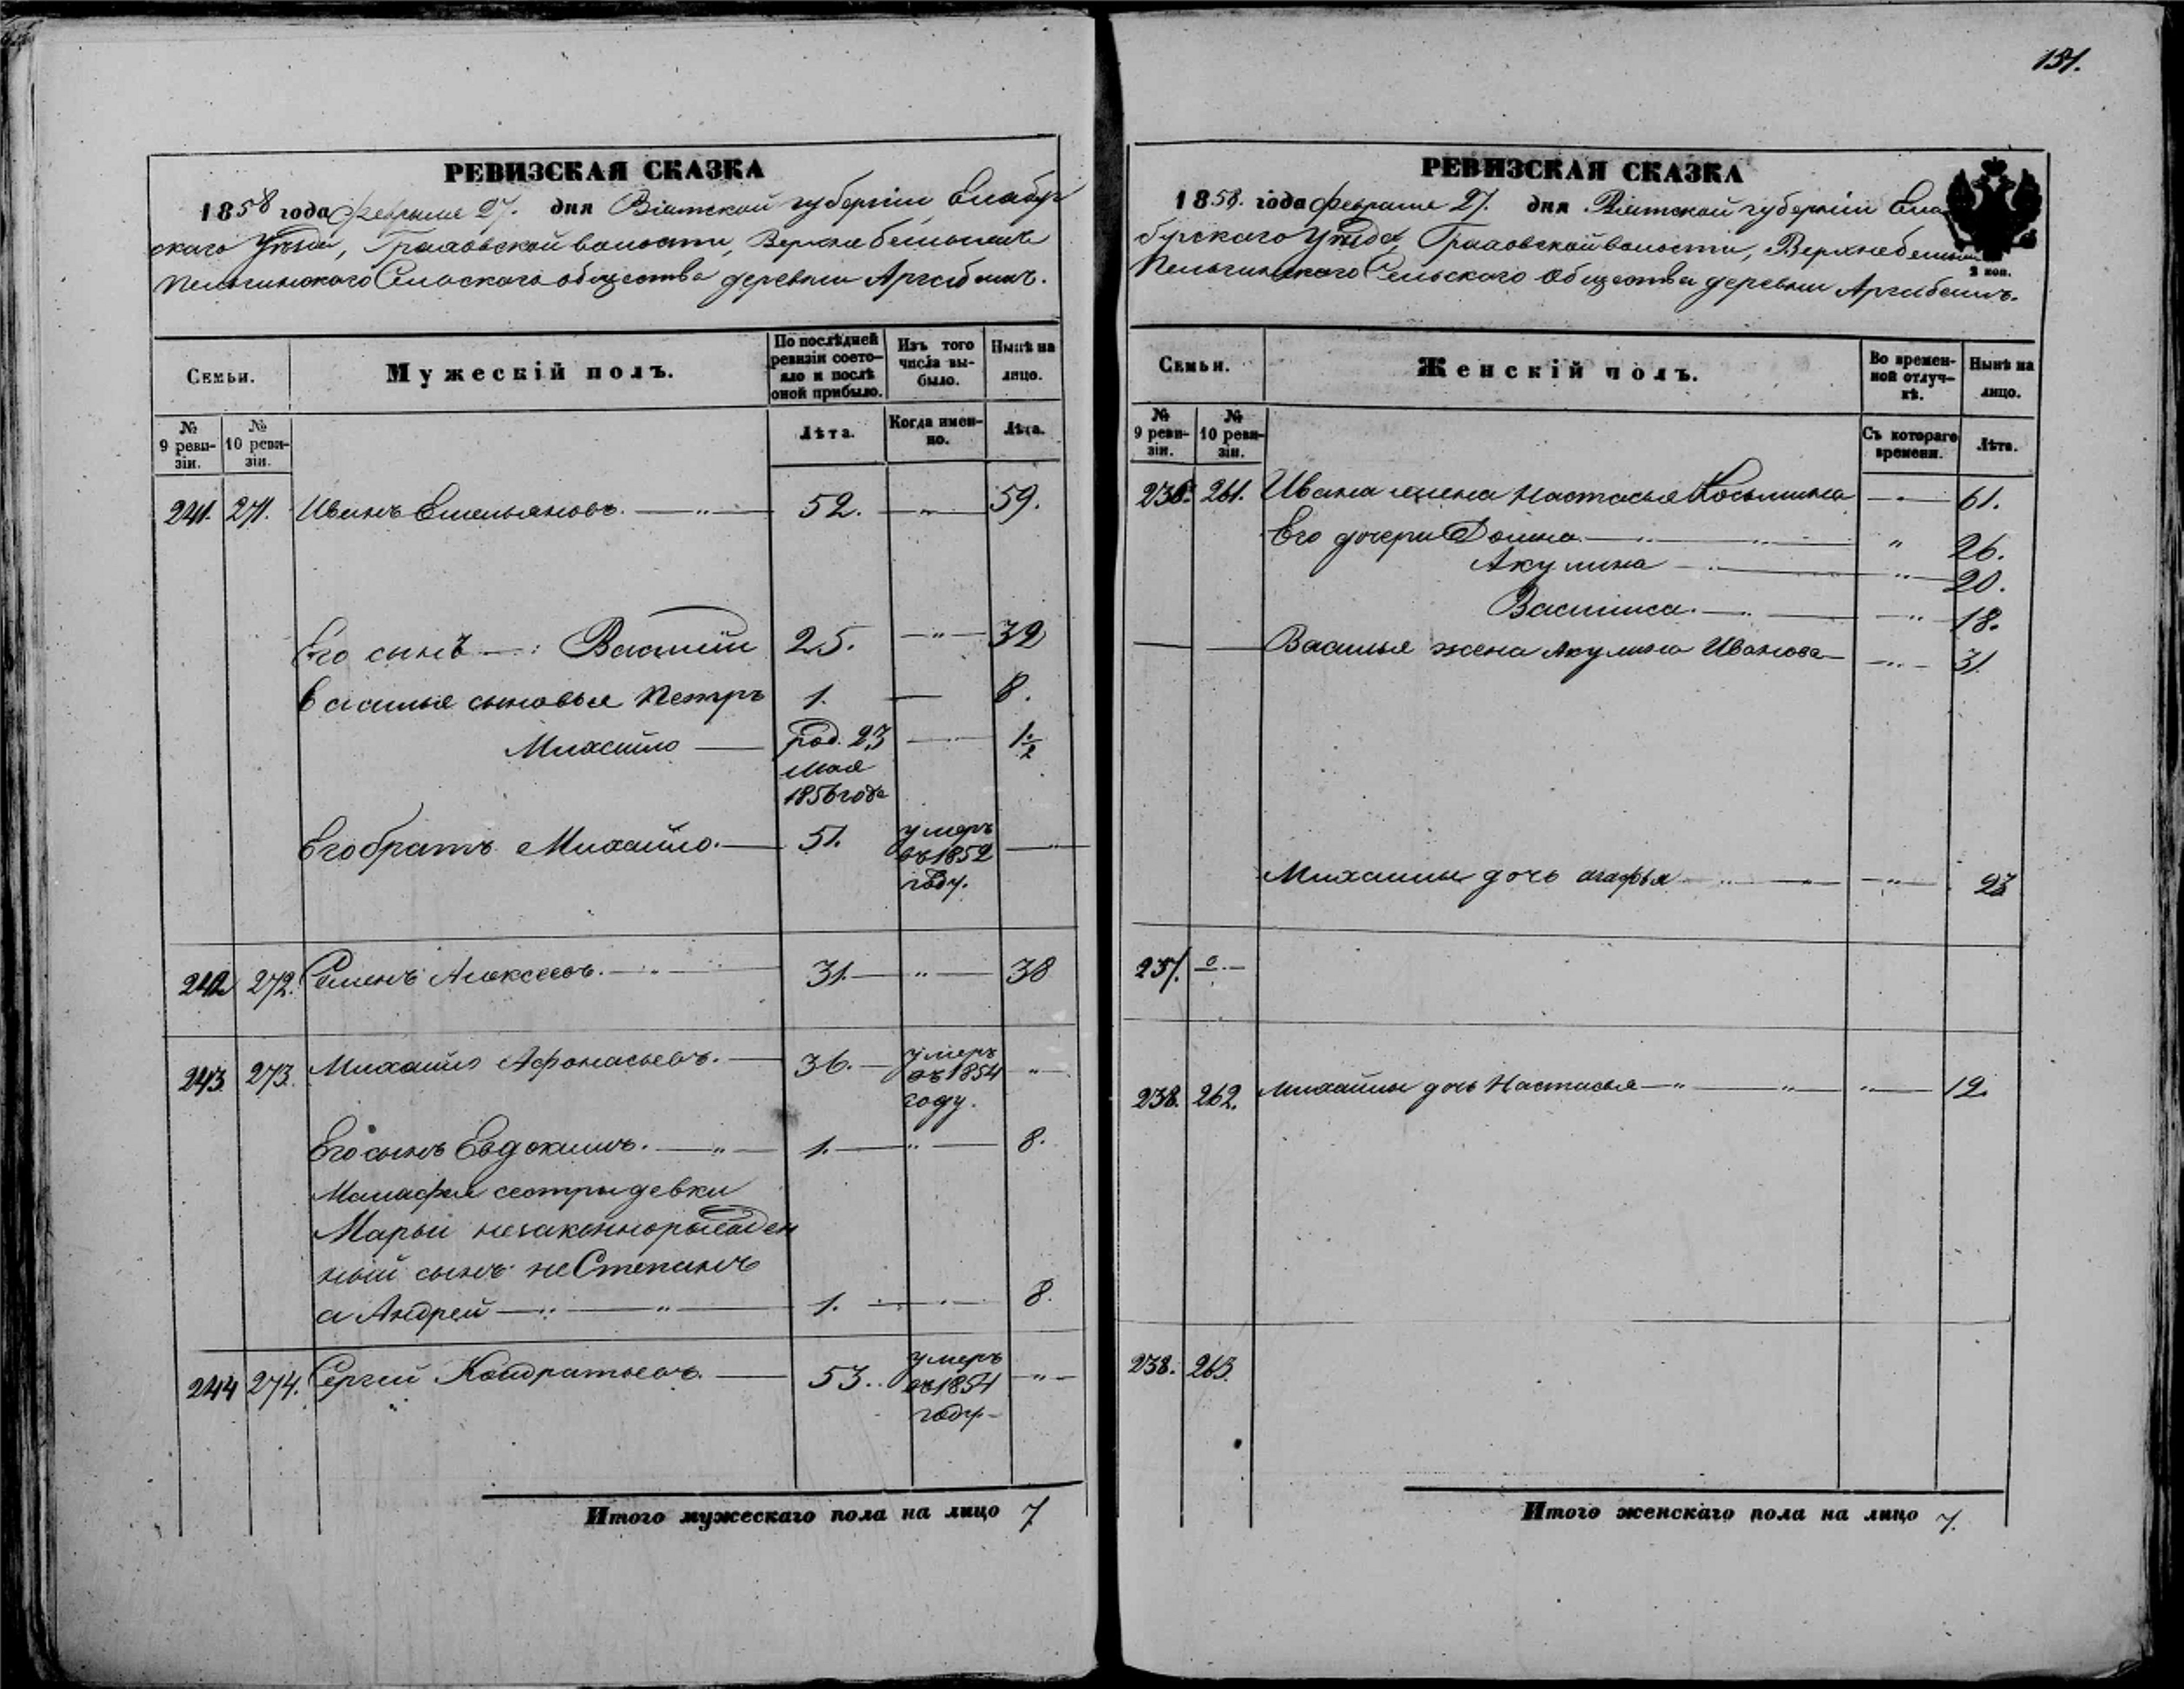 131.
РЕВИЗСКАЯ СКАЗКА
1858 года февраля 27. дня Вятской губернiи, Елабуж
скаго Уѣзда, Граховской волости,
Пельгинскаго Сельскаго общества деревни
Семьи.
Мужескiй полъ.
По послѣдней ревизiи состо-яло и послѣ оной прибыло.
Изъ того числа вы-было.
Нынѣ на лицо.
№ 9 реви-зiи.
№ 10 реви-зiи.
Лѣта.
Когда имен-но.
Лѣта.
241. 271. Иванъ Емельяновъ. — 52. — 59.
Его сынъ — : Василiй 25. — 32
Василья сыновья Петръ 1. — 8.
Михайло — род. 23 — 1 1/2
мая
1856 года
Его братъ Михайло. — 51. умеръ —
въ 1852
году.
242 272. Семенъ Алексеевъ. — 31. — 38
243 273. Михайло Афонасьевъ. — 36. — умеръ "
въ 1854
году.
Его сынъ Евдокимъ. — 1. — 8.
сестры девки
Марьи незаконнорожден
ный сынъ не Степанъ
а Андрей — 1. — 8.
244 274. Сергей Кондратьевъ. — 53. умеръ "
въ 1854
году
Итого мужескаго пола на лицо 7
РЕВИЗСКАЯ СКАЗКА
1858. года февраля 27. дня Вятской губернiи Ела
бужскаго Уѣзда, Граховской волости,
Пельгинскаго Сельскаго Общества деревни
2 коп.
Семьи.
Женскiй полъ.
Во времен-ной отлуч-кѣ.
Нынѣ на лицо.
№ 9 реви-зiи.
№ 10 реви-зiи.
Съ котораго времени.
Лѣта.
236. 261. Ивана жена Настасья Косьмина — 61.
Его дочери Домна — " 26.
Акулина — " 20.
Василиса. — " 18.
Василья жена Акулина Иванова — 31.
Михайлы дочь агафья — " 23
237. 0
238. 262. Михайлы дочь Настасья — " 12.
238. 263.
Итого женскаго пола на лицо 7.